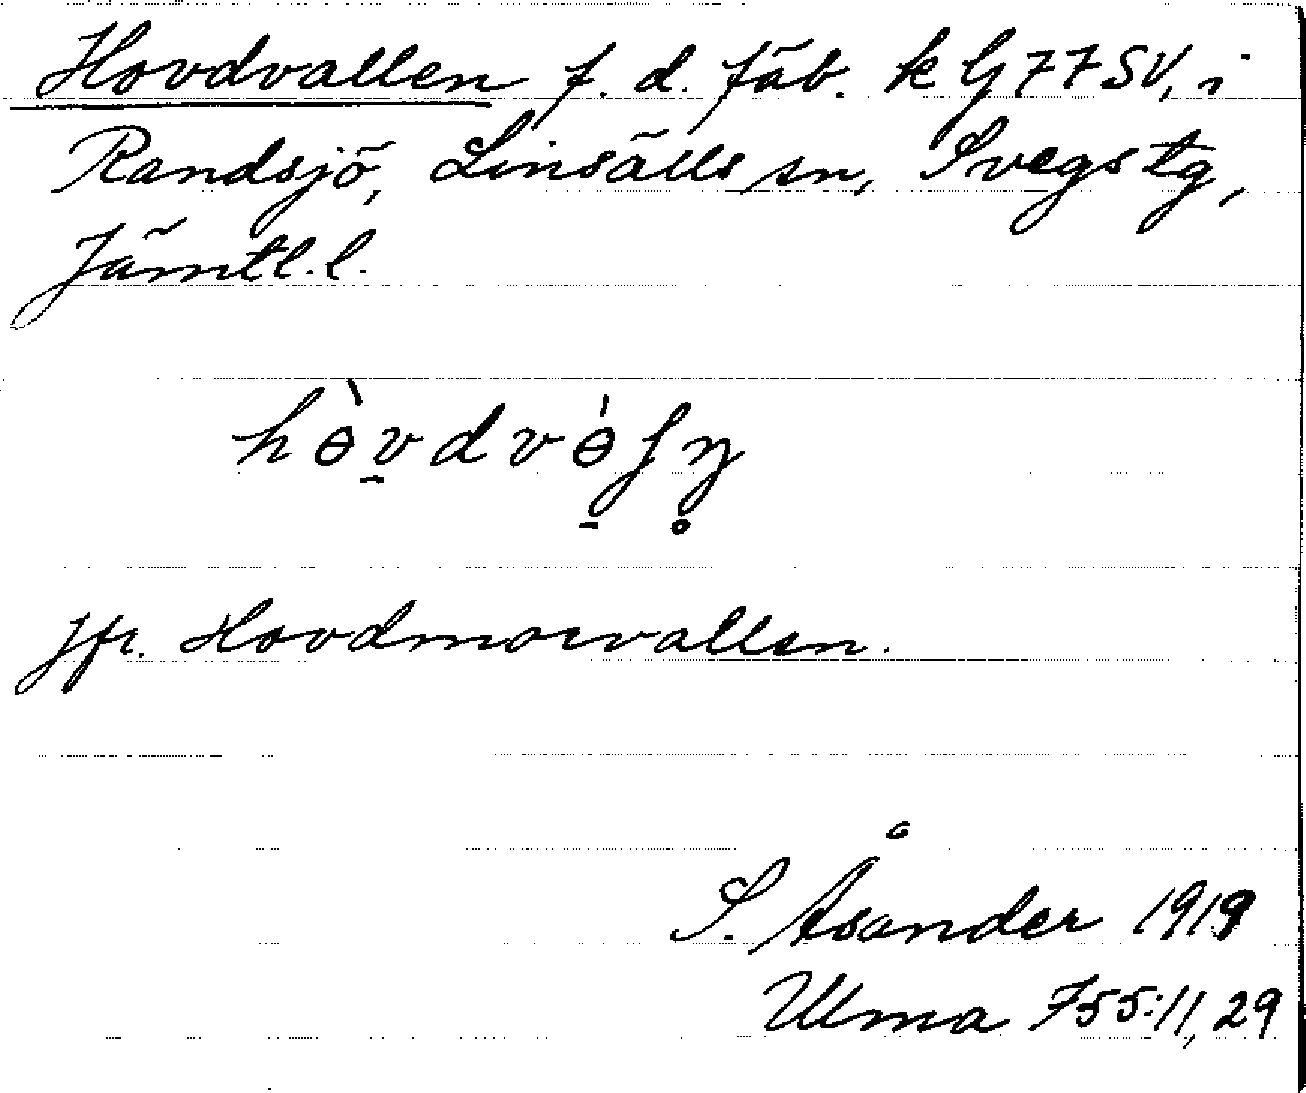 Hovdvallen f. d. fäb. k G 77 SV, i
Randsjö, Linsälls sn, Svegs tg,
Jämtl. l.
jfr. Hovdmorvallen.
S. Åsander 1919
Ulma 755:11, 29